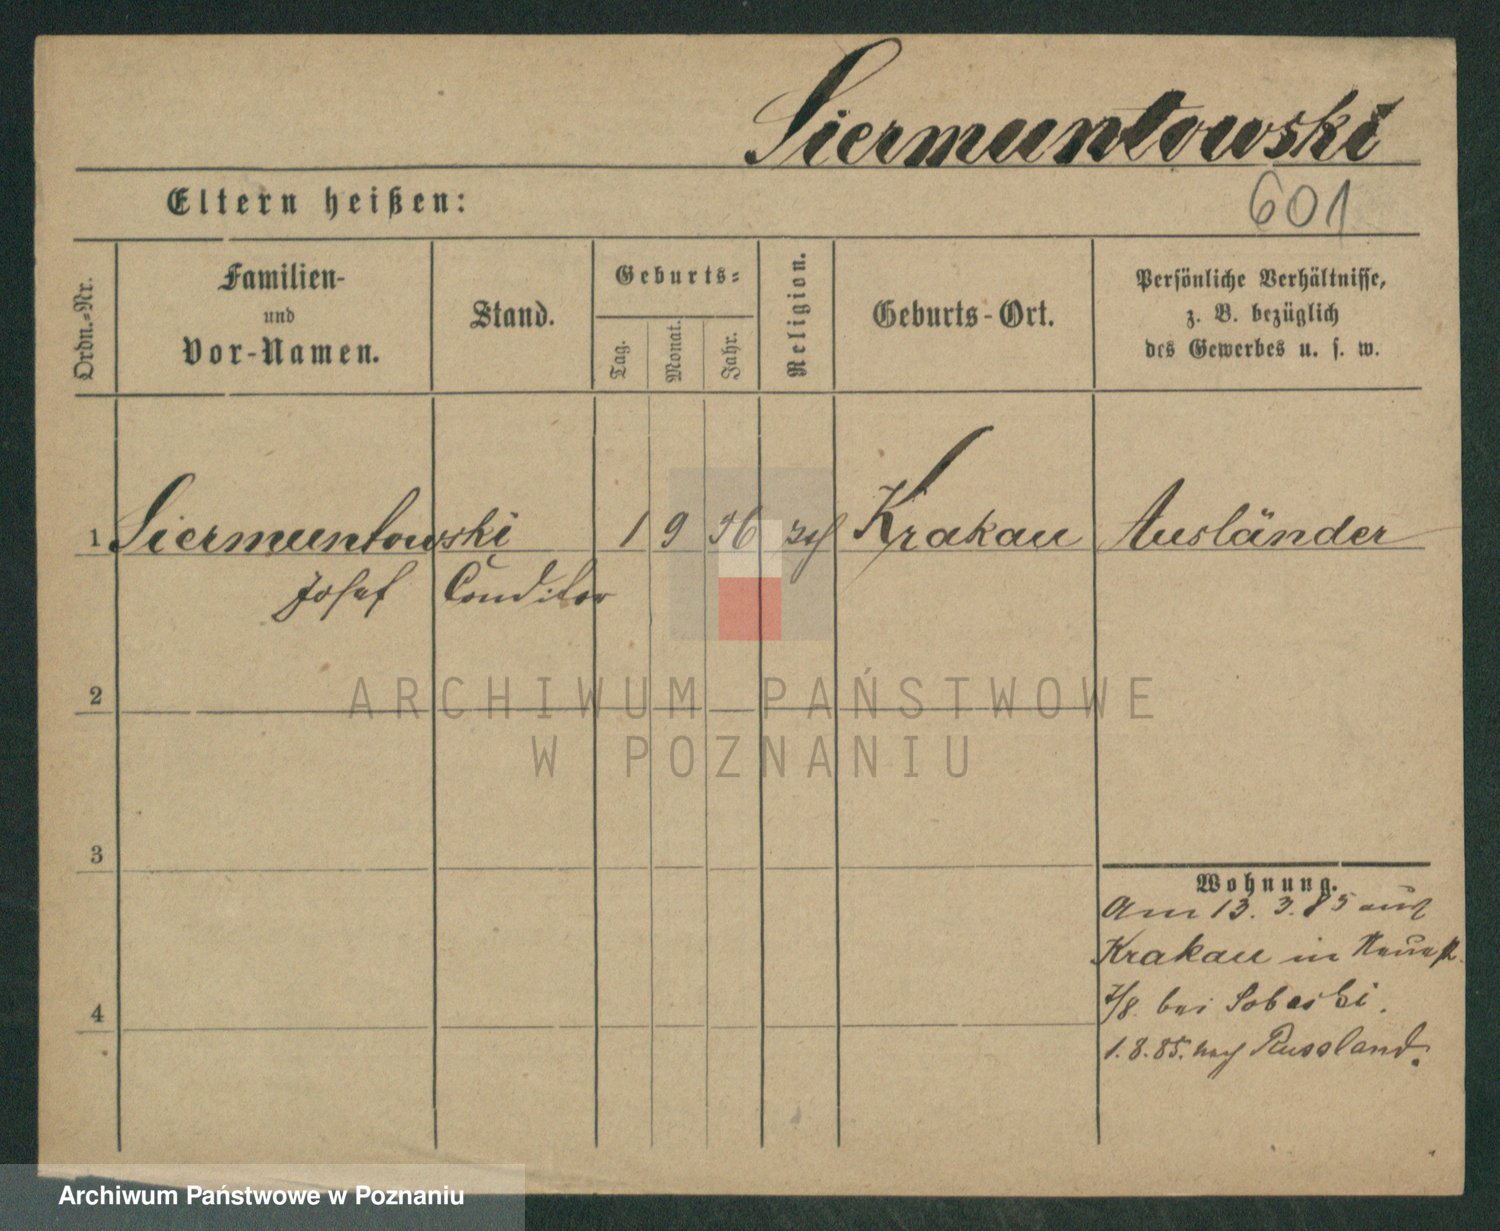 Siermuntowski
Eltern heißen:
601
Ordn.-Nr.
Familien-
und
Vor-Namen.
Stand.
Geburts-
Tag.
Monat.
Jahr.
Religion.
Geburts-Ort.
Persönliche Verhältnisse,
z. B. bezüglich
des Gewerbes u. s. w.
1 Siermuntowski 1 9 Krakau Ausländer
Josef Conditor
2
3
4
Wohnung.
Am 13. 3. 85 aus
Krakau in
7/8. bei Sobeski.
1. 8. 85. nach Russland.
ARCHIWUM PAŃSTWOWE
W POZNANIU
Archiwum Państwowe w Poznaniu